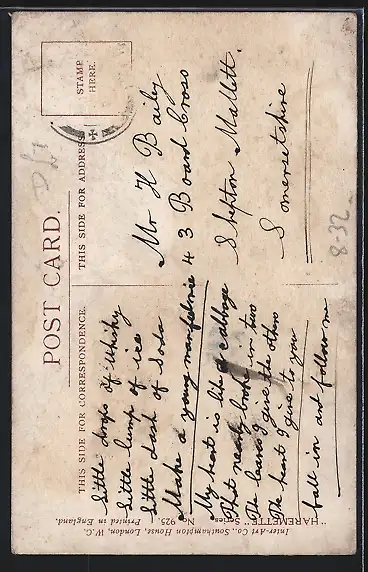 POST CARD.
THIS SIDE FOR CORRESPONDENCE.
THIS SIDE FOR ADDRESS
STAMP
HERE.
Little drops of Whisky
Little lump of ice
Little dash of Soda
Make a young man feel nice
My heart is like a cabbage
That nearly broke in two
The leaves I give the others
The heart I give to you
fall in and follow me
Mr H Baily
43 Board Cross
Shepton Mallett.
Somersetshire
8-32
Inter-Art Co., Southampton House, London, W.C.
"HAREMETTE" Series. No. 925. Printed in England.